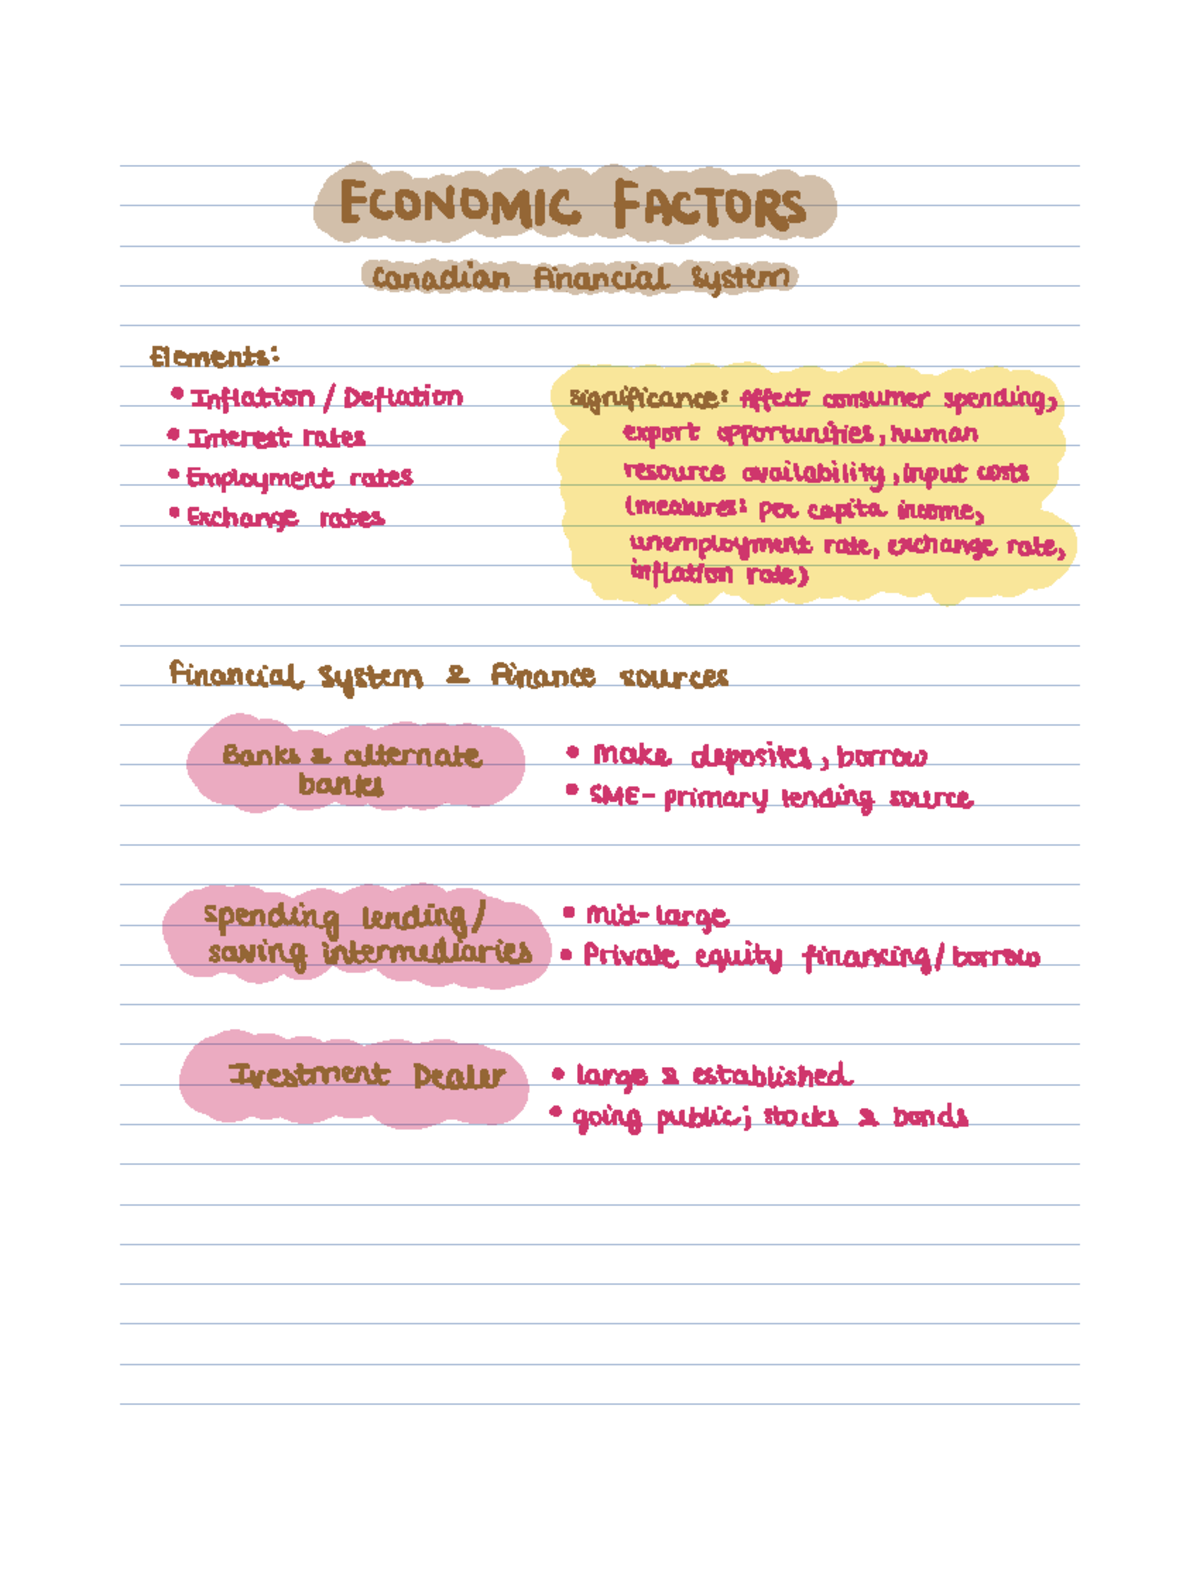 ECONOMIC FACTORS
Canadian Financial System
Elements:
• Inflation / Deflation
• Interest rates
• Employment rates
• Exchange rates
Significance: Affect consumer spending,
export opportunities, human
resource availability, input costs
(measures: per capita income,
unemployment rate, exchange rate,
inflation rate)
Financial System & Finance sources
Banks & alternate
banks
• Make deposites, borrow
• SME - primary lending source
Spending lending/
saving intermediaries
• Mid-large
• Private equity financing/borrow
Ivestment Dealer
• large & established
• going public; stocks & bonds